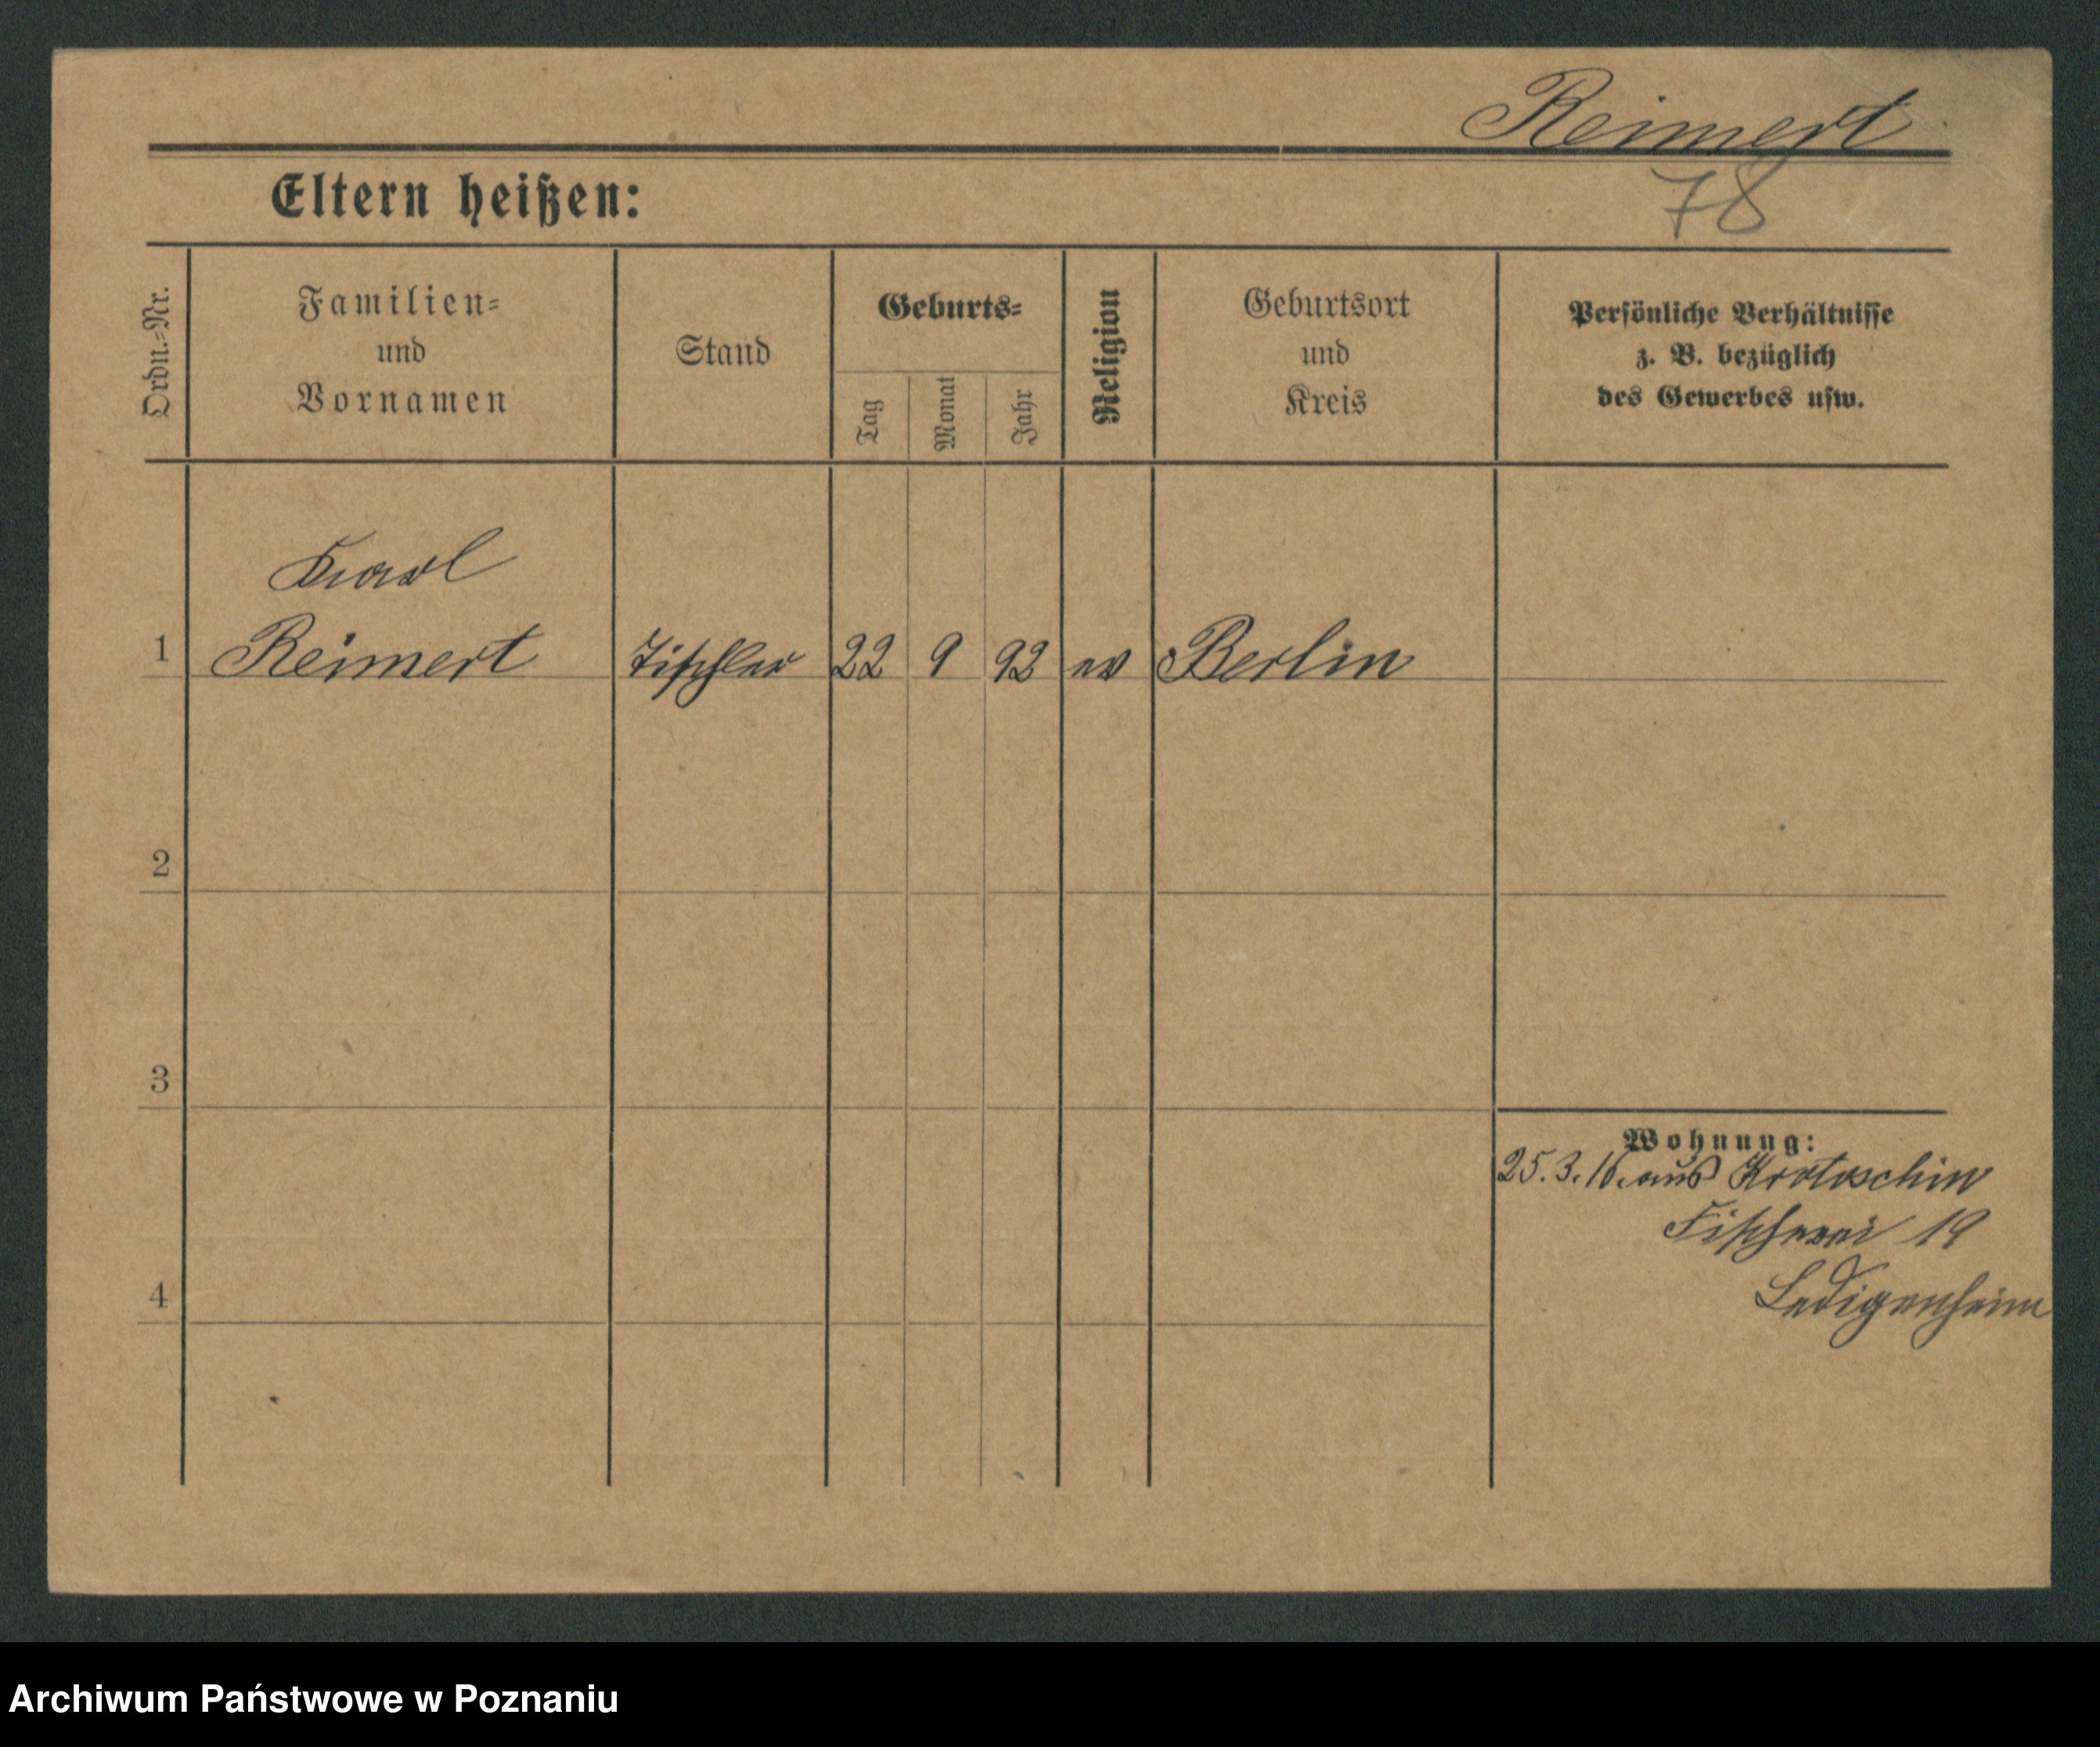 Reimert
Eltern heißen:
78
Ordn.=Nr.
Familien=
und
Vornamen
Stand
Geburts=
Tag
Monat
Jahr
Religion
Geburtsort
und
Kreis
Persönliche Verhältnisse
z. B. bezüglich
des Gewerbes usw.
Karl
1 Reimert Tischler 22 9 92 ev Berlin
2
3
Wohnung:
25.3.16. aus Krotoschin
Fischerei 19
Ledigenheim
4
Archiwum Państwowe w Poznaniu